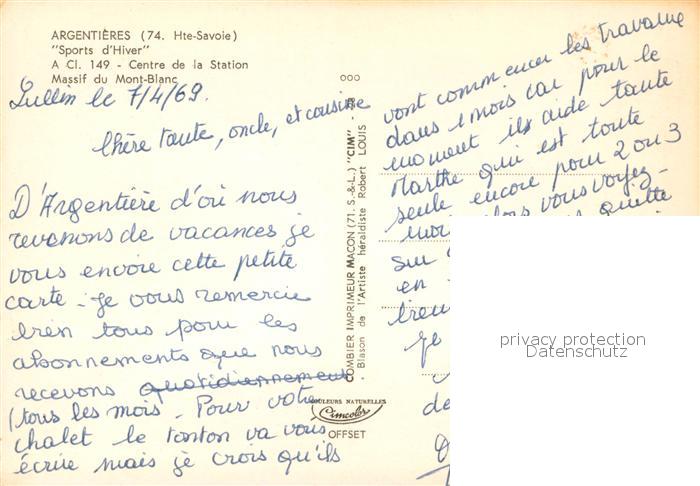 ARGENTIÈRES (74. Hte-Savoie)
"Sports d'Hiver"
A Cl. 149 - Centre de la Station
Massif du Mont-Blanc
Lullin le 7/4/69.
Chère tante, oncle, et cousine
D'Argentière d'où nous
revenons de vacances je
vous envoie cette petite
carte. Je vous remercie
bien tous pour les
abonnements que nous
recevons quotidiennement
(tous les mois. Pour votre
chalet le tonton va vous
écrire mais je crois qu'ils
COMBIER IMPRIMEUR MACON (71. S.-&-L.) "CIM"
Blason de l'Artiste héraldiste Robert LOUIS
COULEURS NATURELLES
Cimcolor
OFFSET
vont commencer les travaux
dans 1 mois car pour le
moment ils aide tante
Marthe qui est toute
seule encore pour 2 ou 3
mois. Alors vous voyez.
quitte
sur
en
Je
de
privacy protection
Datenschutz